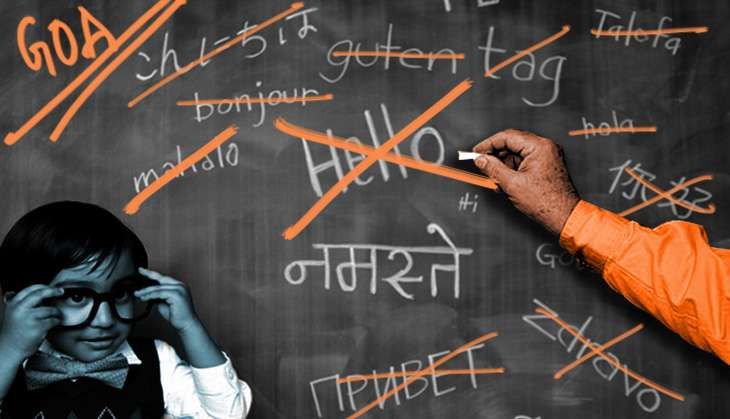 GOA
こんにちは
guten tag
Talofa
bonjour
hola
mahalo
Hello
你好
Hi
नमस्ते
Zdravo
ПРИВЕТ